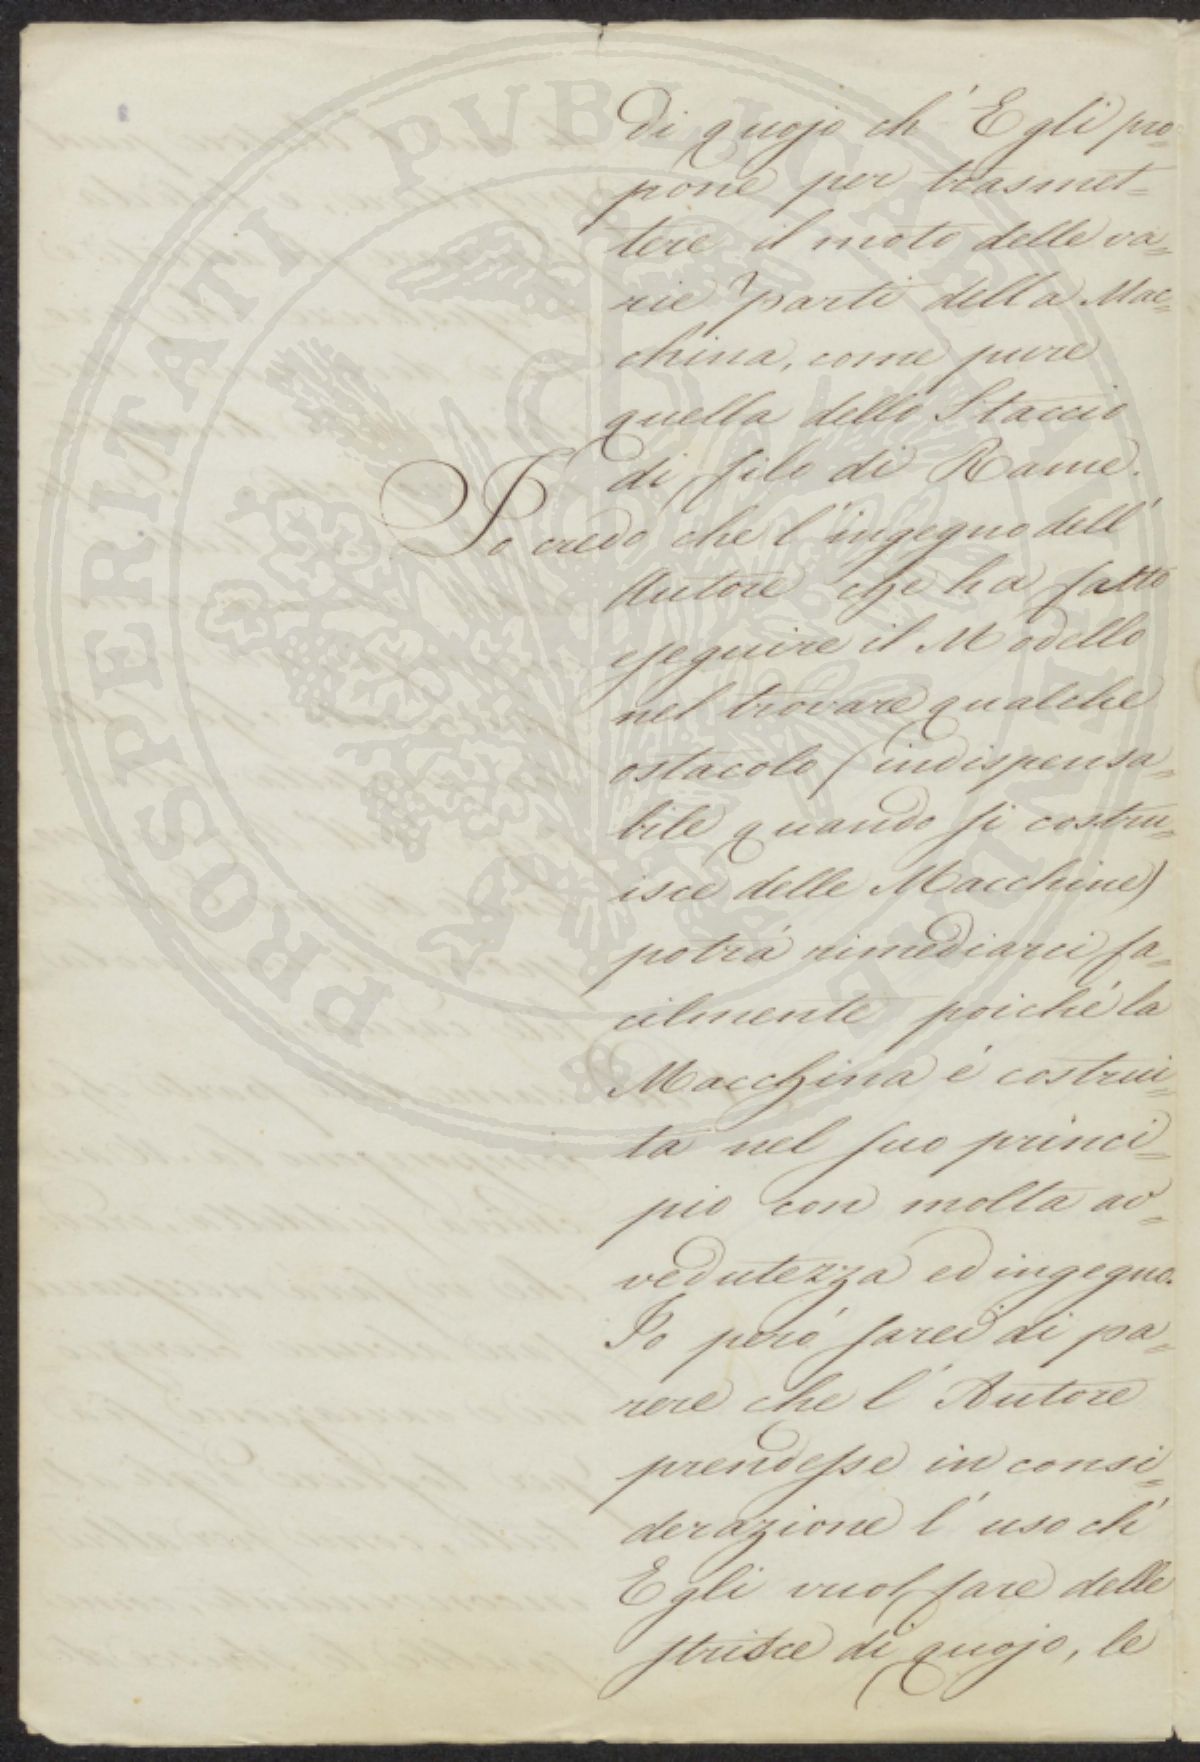 PROSPERITATI PVBLICAE AVGENDAE
di quojo ch' Egli pro-
pone per trasmet-
tere il moto delle va-
rie parti della Mac-
china, come pure
quella dello Staccio
di filo di Rame.
Io credo che l'ingegno dell'
Autore che ha fatto
eseguire il Modello
nel trovare qualche
ostacolo (indispensa-
bile quando si costru-
isce delle Macchine)
potrá rimediarci fa-
cilmente poiché la
Macchina é costrui-
ta nel suo princi-
pio con molta av-
vedutezza ed ingegno.
Io peró sarei di pa-
rere che l' Autore
prendesse in consi-
derazione l' uso ch'
Egli vuol fare delle
strisce di quojo, le